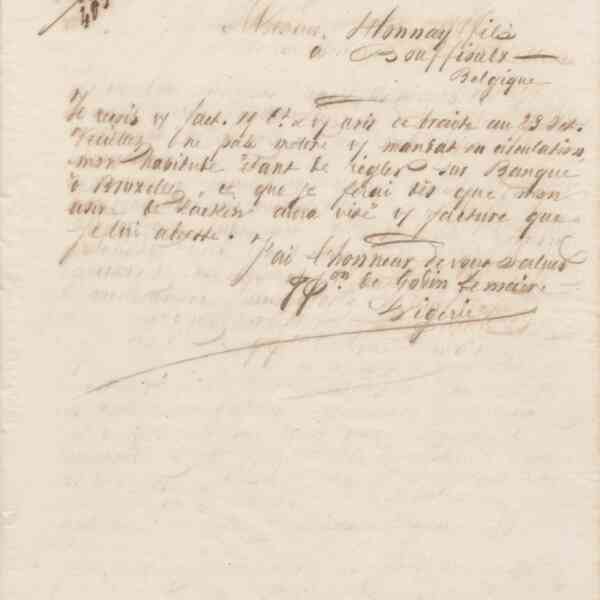 Monnoyer fils
à Bouffioulx
Belgique
Je reçois v/ fact. 19 Ct. & v/ avis de traite au 23 Oct.
Veuillez ne pas mettre v/ mandat en circulation
mon habitude étant de régler sur Banque
à Bruxelles, ce que je ferai dès que mon
usine de Laeken aura visé v/ facture que
je lui adresse.
J'ai l'honneur de vous saluer
Pon de Godin Lemaire